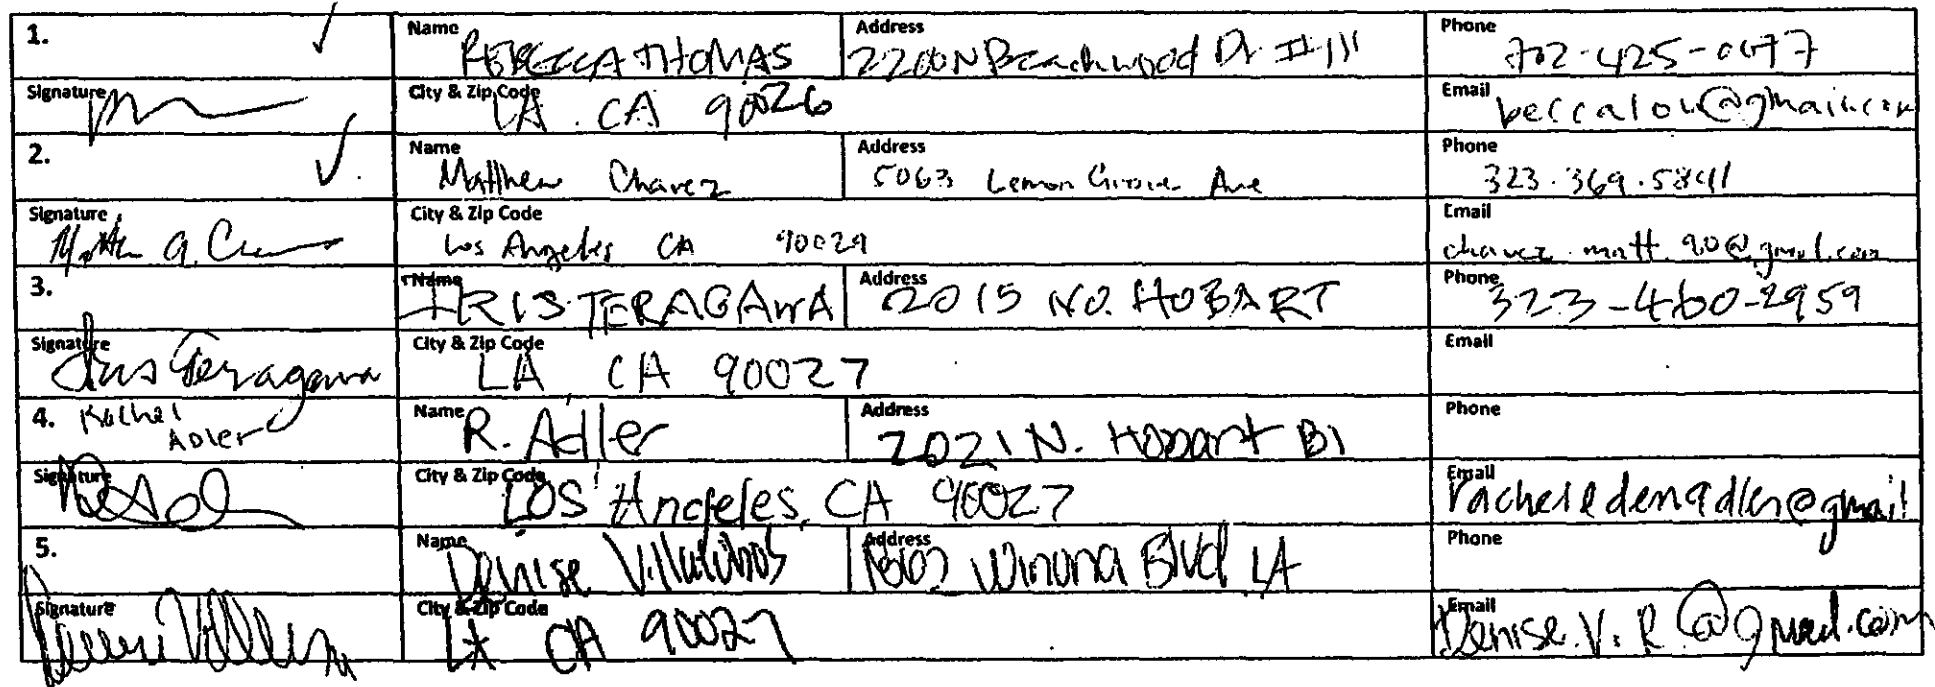 1. ✓ Name REBECCA THOMAS Address 2200 N Beachwood Dr #111 Phone 702-425-0677
Signature City & Zip Code LA. CA 90026 Email beccalou@gmail.com
2. ✓ Name Matthew Chavez Address 5063 Lemon Grove Ave Phone 323.369.5841
Signature Matthew A. City & Zip Code Los Angeles CA 90029 Email chavez.matt.90@gmail.com
3. Name IRIS TERAGAWA Address 2015 NO. HOBART Phone 323-460-2959
Signature Iris Teragawa City & Zip Code LA CA 90027 Email
4. Rachel Adler Name R. Adler Address 2021 N. Hobart Bl Phone
Signature City & Zip Code Los Angeles, CA 90027 Email racheledenadler@gmail
5. Name Denise Villalobos Address Winona Blvd LA Phone
Signature City & Zip Code LA CA 90027 Email Denise.V.R.@gmail.com